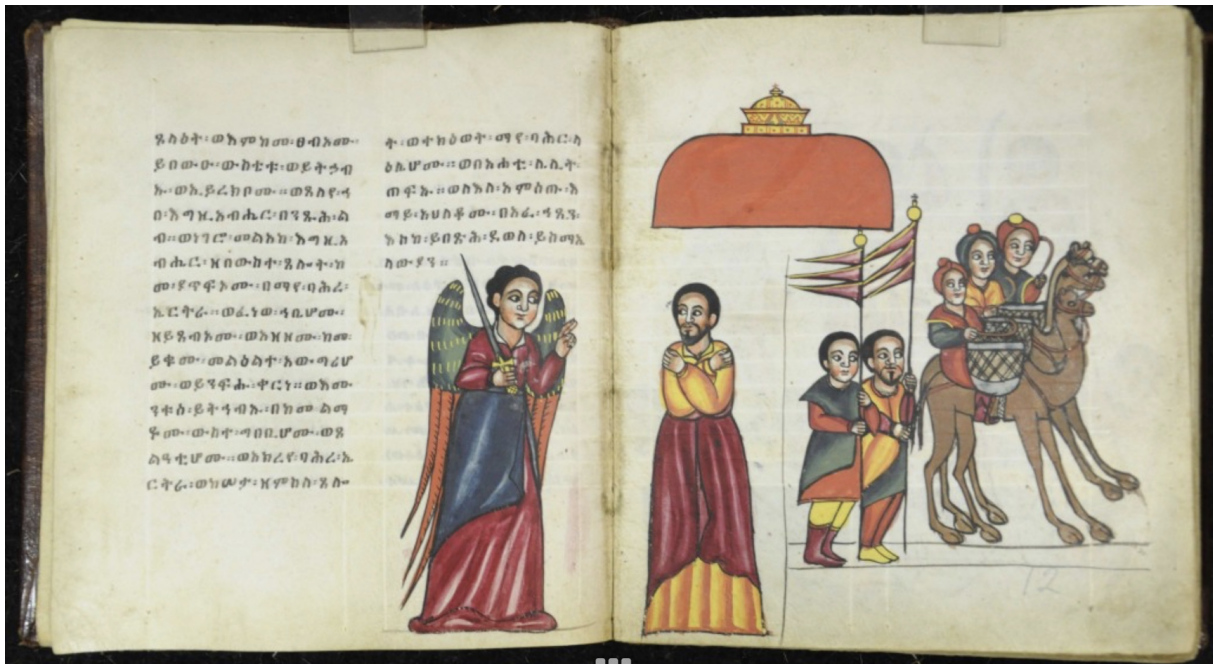 ጸለዕት፡ወእምከመ፡ፀብአሙ፡
ይበውዑ፡ውስቴቱ፡ወይትኃብ
ኡ፡ወኢይረክቦሙ፡፡ወጸለየ፡ኀ
በ፡እግዚአብሔር፡በንጹሕ፡ል
ብ፡፡ወነገሮ፡መልአከ፡እግዚአ
ብሔር፡ዘበውስተ፡ጸሎት፡ከ
መ፡ያጥፍኦሙ፡በማየ፡ባሕረ፡
ኤርትራ፡፡ወፈነወ፡ኀቤሆሙ፡
ዘይጸብኦሙ፡ወአዘዞሙ፡ከመ፡
ይቁሙ፡መልዕልተ፡አውግሪሆ
ሙ፡ወይንፍሑ፡ቀርነ፡፡ወእሙ
ንቱሰ፡ይትኃብኡ፡በከመ፡ልማ
ዶሙ፡ውስተ፡ግበቢሆሙ፡ወጸ
ልዓቲሆሙ፡፡ወአክረየ፡ባሕረ፡ኤ
ርትራ፡ወከሠታ፡ዘምስለ፡ጸሎ
ት፡ወተክዕወት፡ማየ፡ባሕር፡ላ
ዕሌሆሙ፡፡ወበአሐቲ፡ሌሊት፡
ጠፍኡ፡፡ወለእለ፡አምሰጡ፡እ
ማይ፡አህለቆሙ፡በአፈ፡ኀጺን፡
እስከ፡ይበጽሕ፡ደወለ፡ይስማኤ
ላውያን፡፡
12